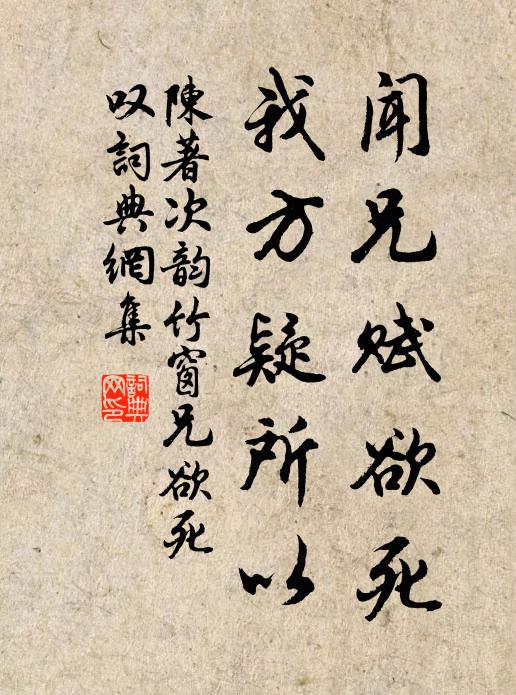 闻兄赋欲死
我方疑所以
陳著次韵竹窗兄欲死
叹詞典網集
詞典网印